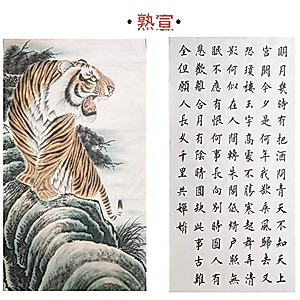 熟宣
明月幾時有把酒問青天不知天上
宫闕今夕是何年我欲乘風歸去又
恐瓊樓玉宇高處不勝寒起舞弄清
影何似在人間轉朱閣低綺户照無
眠不應有恨何事長向別時圓人有
悲歡離合月有陰晴圓缺此事古難
全但願人長久千里共嬋娟